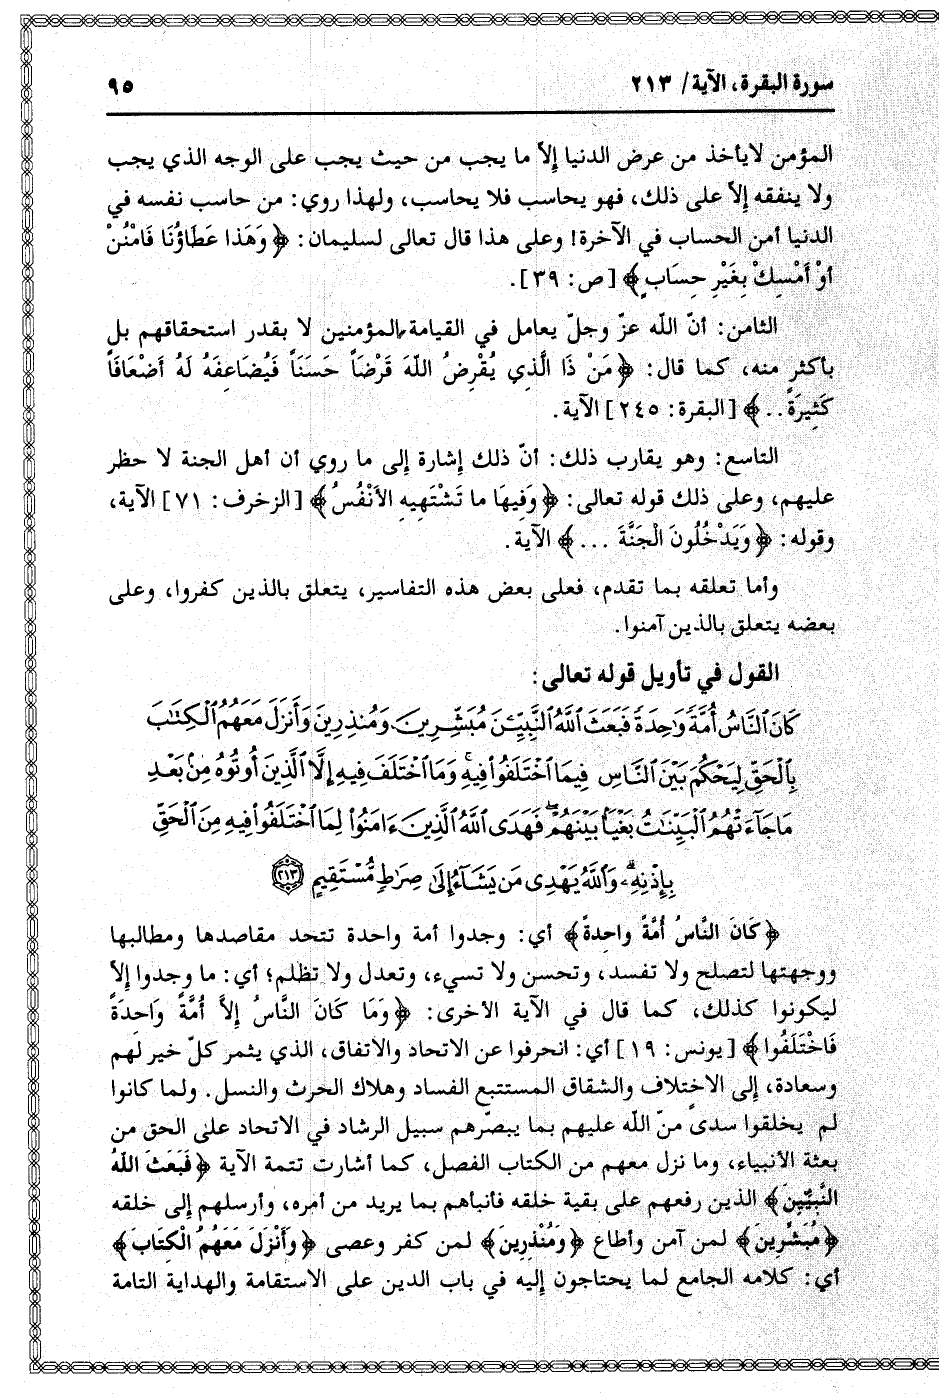 سورة البقرة، الآية/ ٢١٣
٩٥
المؤمن لا يأخذ من عرض الدنيا إلاّ ما يجب من حيث يجب على الوجه الذي يجب
ولا ينفقه إلاّ على ذلك، فهو يحاسب فلا يحاسب، ولهذا روي: من حاسب نفسه في
الدنيا أمن الحساب في الآخرة! وعلى هذا قال تعالى لسليمان: ﴿وَهَذا عَطَاؤُنَا فَامْنُنْ
أوْ أَمْسِكْ بِغَيْرِ حِسَابٍ﴾ [ص: ٣٩].
الثامن: أنّ الله عزّ وجلّ يعامل في القيامة المؤمنين لا بقدر استحقاقهم بل
بأكثر منه، كما قال: ﴿مَنْ ذَا الَّذِي يُقْرِضُ اللَّهَ قَرْضَاً حَسَنَاً فَيُضَاعِفَهُ لَهُ أَضْعَافَاً
كَثِيرَةً..﴾ [البقرة: ٢٤٥] الآية.
التاسع: وهو يقارب ذلك: أنّ ذلك إشارة إلى ما روي أن أهل الجنة لا حظر
عليهم، وعلى ذلك قوله تعالى: ﴿وَفِيهَا ما تَشْتَهِيهِ الأَنْفُسُ﴾ [الزخرف: ٧١] الآية،
وقوله: ﴿وَيَدْخُلُونَ الْجَنَّةَ ...﴾ الآية.
وأما تعلقه بما تقدم، فعلى بعض هذه التفاسير، يتعلق بالذين كفروا، وعلى
بعضه يتعلق بالذين آمنوا.
القول في تأويل قوله تعالى:
كَانَ ٱلنَّاسُ أُمَّةً وَٰحِدَةً فَبَعَثَ ٱللَّهُ ٱلنَّبِيِّـۧنَ مُبَشِّرِينَ وَمُنذِرِينَ وَأَنزَلَ مَعَهُمُ ٱلْكِتَٰبَ
بِٱلْحَقِّ لِيَحْكُمَ بَيْنَ ٱلنَّاسِ فِيمَا ٱخْتَلَفُوا۟ فِيهِ ۚ وَمَا ٱخْتَلَفَ فِيهِ إِلَّا ٱلَّذِينَ أُوتُوهُ مِنۢ بَعْدِ
مَا جَآءَتْهُمُ ٱلْبَيِّنَٰتُ بَغْيًۢا بَيْنَهُمْ ۖ فَهَدَى ٱللَّهُ ٱلَّذِينَ ءَامَنُوا۟ لِمَا ٱخْتَلَفُوا۟ فِيهِ مِنَ ٱلْحَقِّ
بِإِذْنِهِۦ ۗ وَٱللَّهُ يَهْدِى مَن يَشَآءُ إِلَىٰ صِرَٰطٍ مُّسْتَقِيمٍ ٢١٣
﴿كَانَ النَّاسُ أُمَّةً واحِدةً﴾ أي: وجدوا أمة واحدة تتحد مقاصدها ومطالبها
ووجهتها لتصلح ولا تفسد، وتحسن ولا تسيء، وتعدل ولا تظلم؛ أي: ما وجدوا إلاّ
ليكونوا كذلك، كما قال في الآية الأخرى: ﴿وَمَا كَانَ النَّاسُ إِلاَّ أُمَّةً وَاحِدَةً
فَاخْتَلَفُوا﴾ [يونس: ١٩] أي: انحرفوا عن الاتحاد والاتفاق، الذي يثمر كلّ خير لهم
وسعادة، إلى الاختلاف والشقاق المستتبع الفساد وهلاك الحرث والنسل. ولما كانوا
لم يخلقوا سدىً منّ الله عليهم بما يبصّرهم سبيل الرشاد في الاتحاد على الحق من
بعثة الأنبياء، وما نزل معهم من الكتاب الفصل، كما أشارت تتمة الآية ﴿فَبَعَثَ اللَّهُ
النَّبِيِّينَ﴾ الذين رفعهم على بقية خلقه فأنبأهم بما يريد من أمره، وأرسلهم إلى خلقه
﴿مُبَشِّرِينَ﴾ لمن آمن وأطاع ﴿وَمُنْذِرِينَ﴾ لمن كفر وعصى ﴿وَأَنْزَلَ مَعَهُمُ الْكِتَابَ﴾
أي: كلامه الجامع لما يحتاجون إليه في باب الدين على الاستقامة والهداية التامة